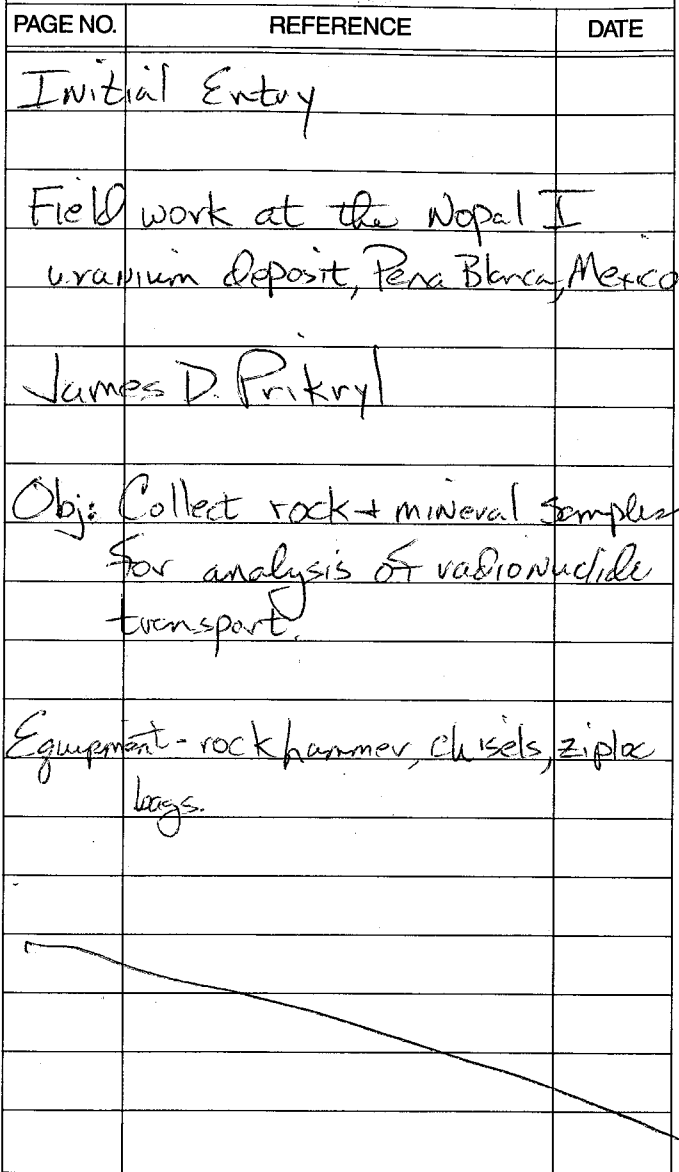 PAGE NO. REFERENCE DATE
Initial Entry
Field work at the Nopal I
uranium deposit, Pena Blanca, Mexico
James D. Prikryl
Obj: Collect rock + mineral samples
for analysis of radionuclide
transport.
Equipment - rock hammer, chisels, ziploc
bags.